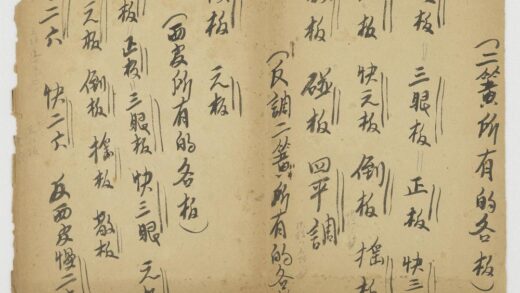 （二簧所有的各板）
板＝三眼板＝正板 快三
板 快元板 倒板 摇板
板 碰板 四平調
（反調二簧所有的各
板 元板
（西皮所有的各板）
板 正板＝三眼板 快三眼 元
元板 倒板 摇板 散板
二六 快二六 反西皮慢二六